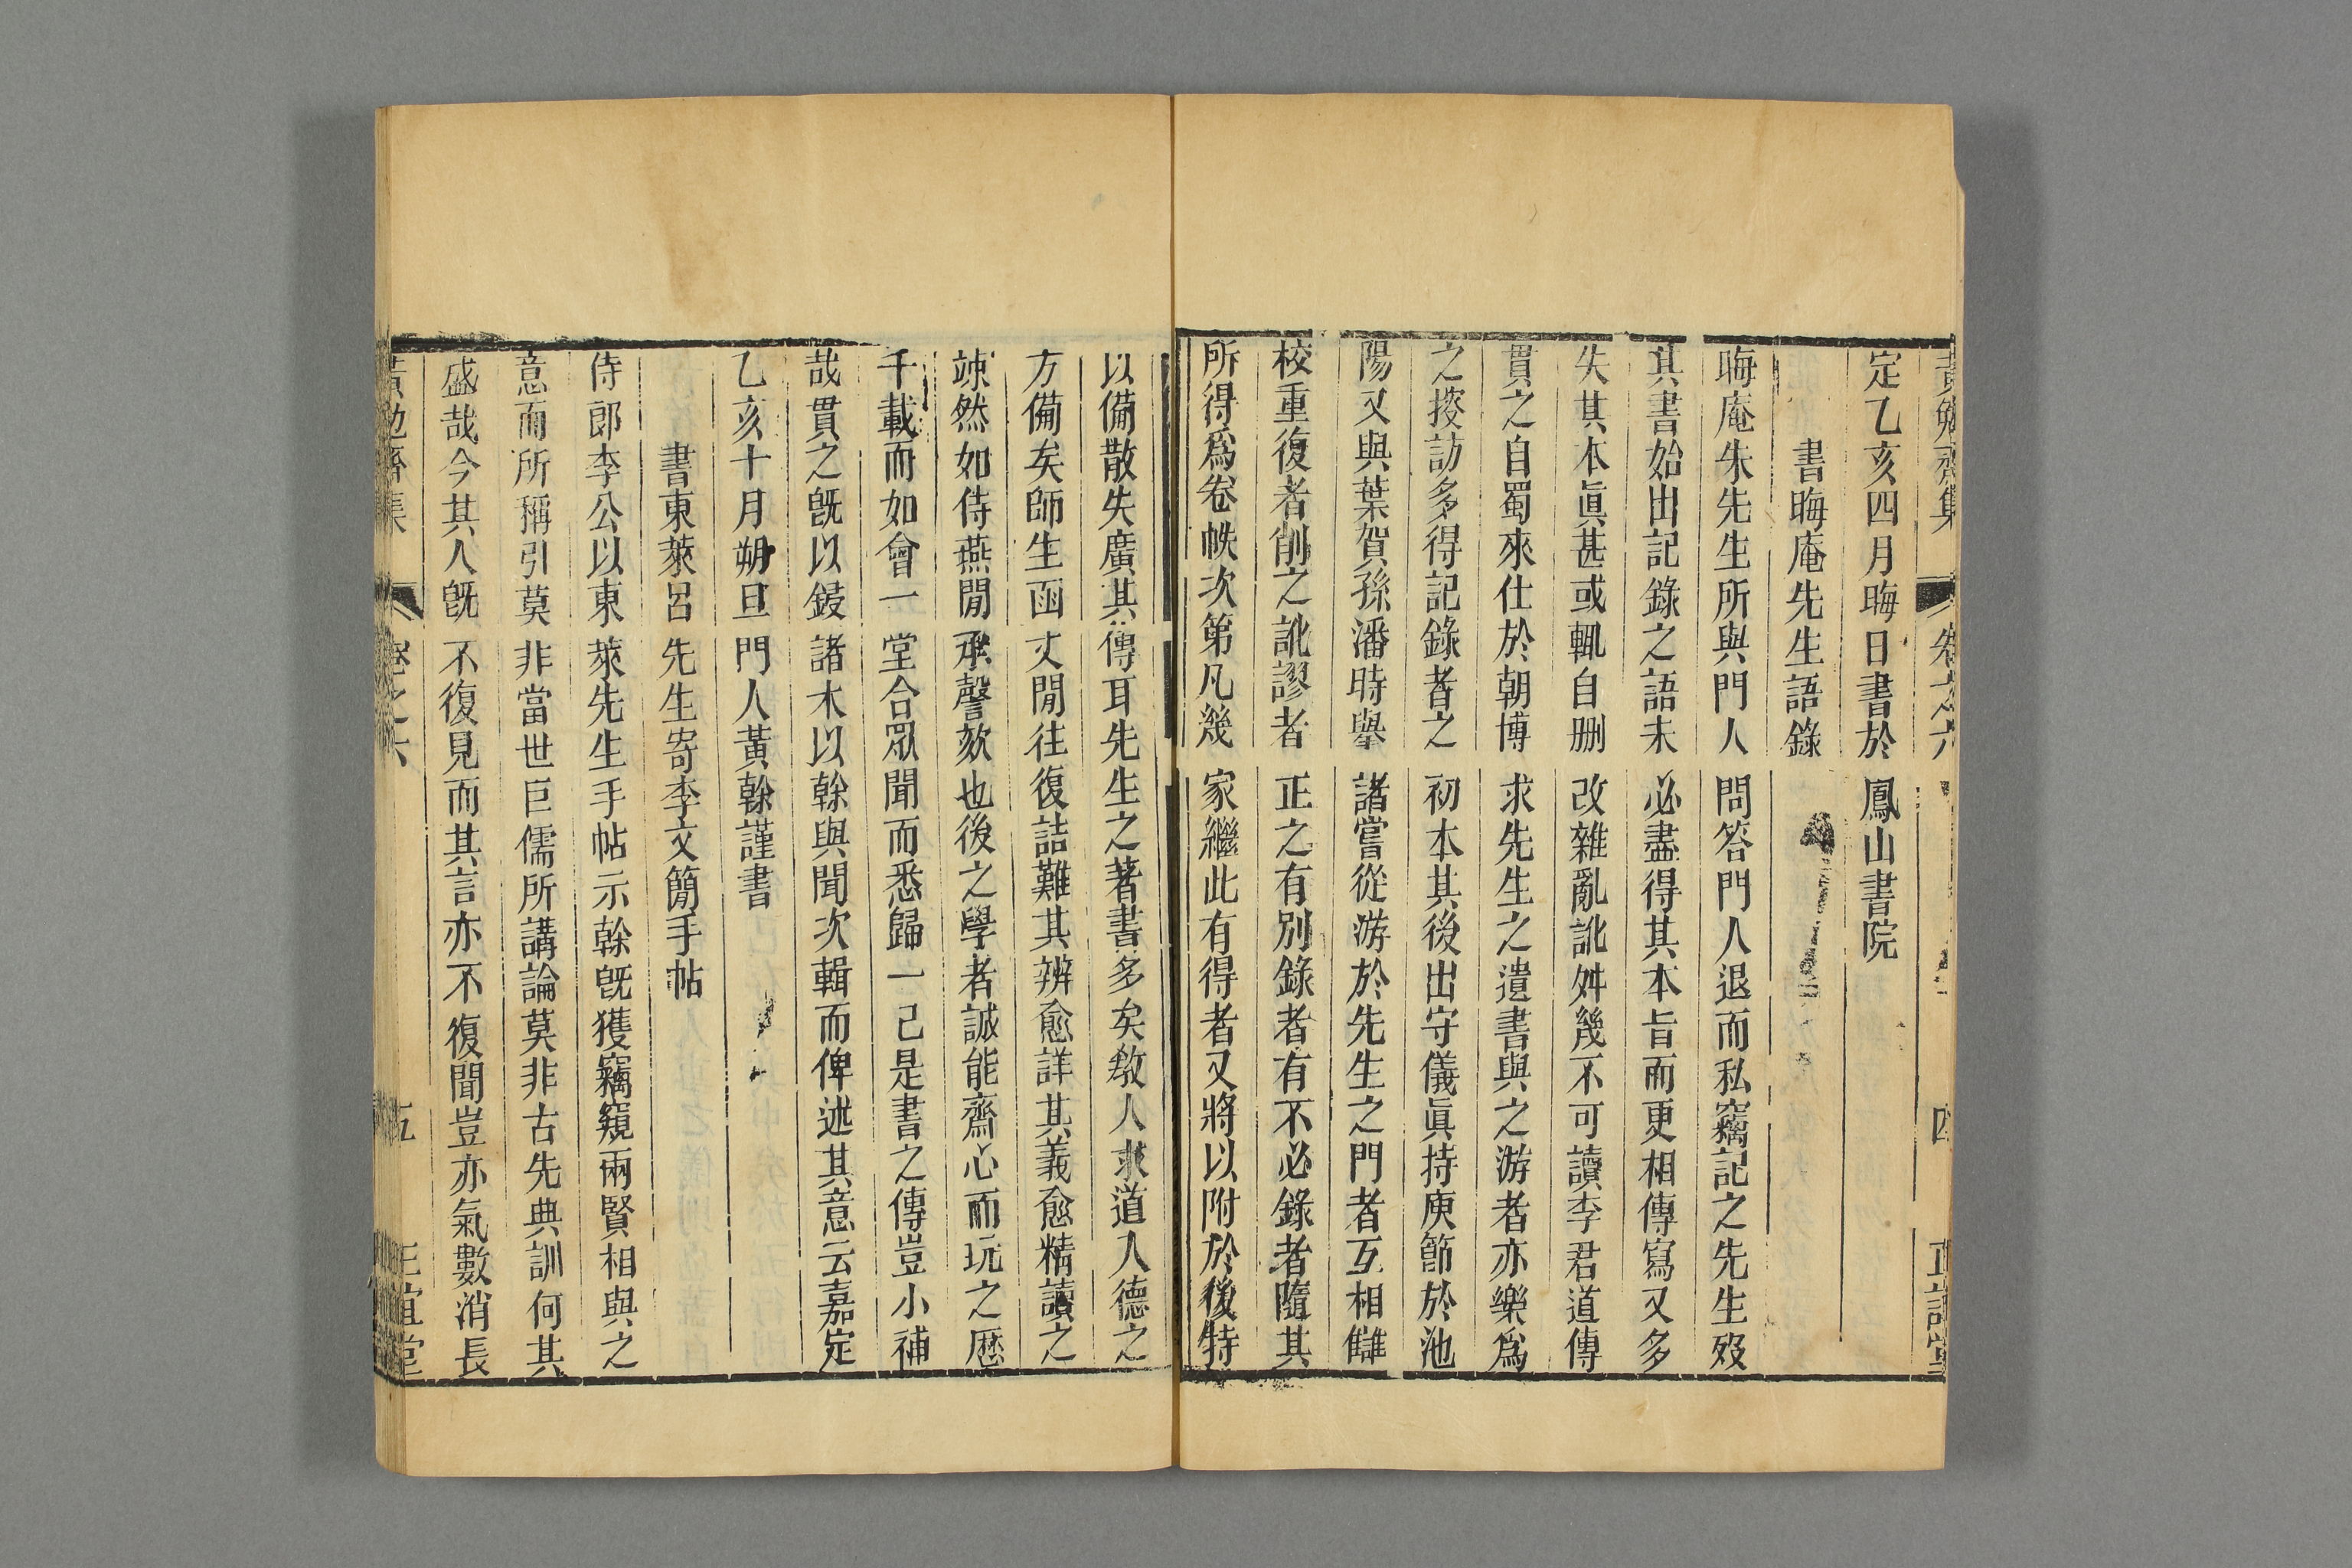 黃勉齋集 卷之六 四 正誼堂
定乙亥四月晦日書於鳳山書院
書晦庵先生語錄
晦庵朱先生所與門人問答門人退而私竊記之先生歿
其書始出記錄之語未必盡得其本旨而更相傳寫又多
失其本眞甚或輒自刪改雜亂訛舛幾不可讀李君道傳
貫之自蜀來仕於朝博求先生之遺書與之游者亦樂爲
之搜訪多得記錄者之初本其後出守儀眞持庾節於池
陽又與葉賀孫潘時舉諸嘗從游於先生之門者互相讎
校重復者削之訛謬者正之有別錄者有不必錄者隨其
所得爲卷帙次第凡幾家繼此有得者又將以附於後特
以備散失廣其傳耳先生之著書多矣敎人求道入德之
方備矣師生函丈閒往復詰難其辨愈詳其義愈精讀之
竦然如侍燕閒承謦欬也後之學者誠能齋心而玩之歷
千載而如會一堂合眾聞而悉歸一己是書之傳豈小補
哉貫之旣以鋟諸木以榦與聞次輯而俾述其意云嘉定
乙亥十月朔旦門人黃榦謹書
書東萊呂先生寄李文簡手帖
侍郎李公以東萊先生手帖示榦旣獲竊窺兩賢相與之
意而所稱引莫非當世巨儒所講論莫非古先典訓何其
盛哉今其人旣不復見而其言亦不復聞豈亦氣數消長
黃勉齋集 卷之六 五 正誼堂